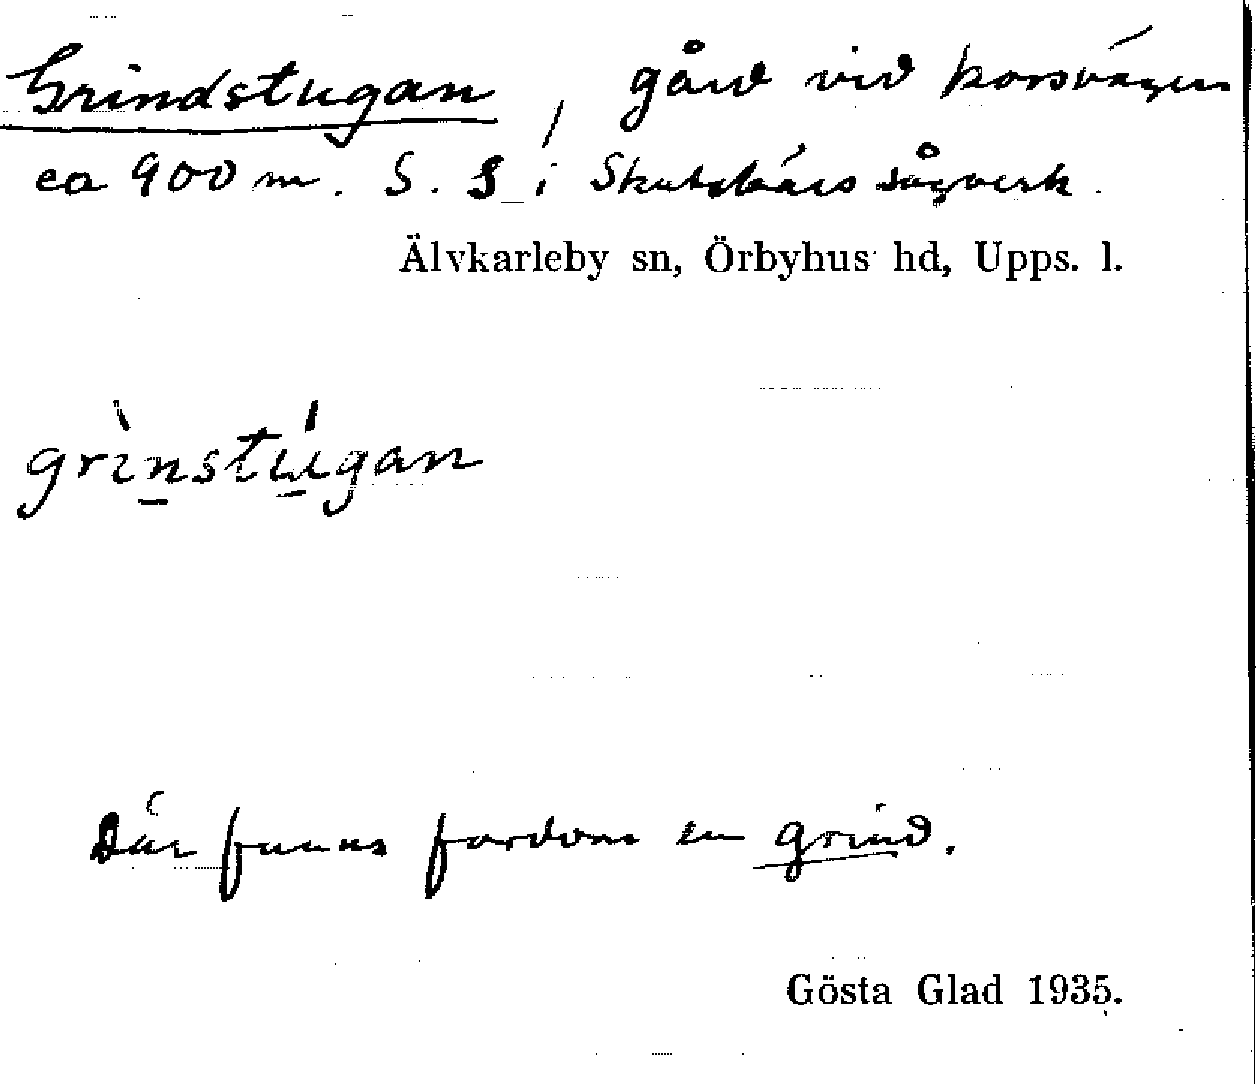 Grindstugan, gård vid korsvägen
ca 900 m. S. S i Skutskärs sågverk.
Älvkarleby sn, Örbyhus hd, Upps. l.
grìnstúgan
Där fanns fordom en grind.
Gösta Glad 1935.